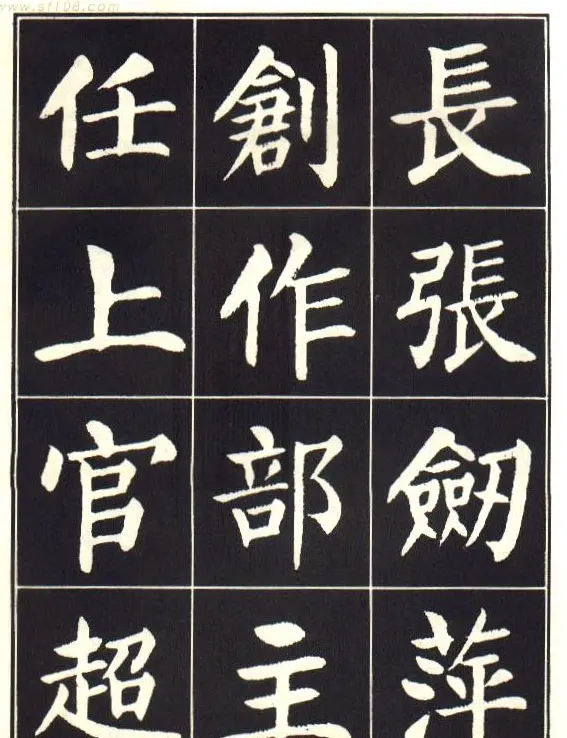 www.sf108.com
長張劒萍
創作部主
任上官超